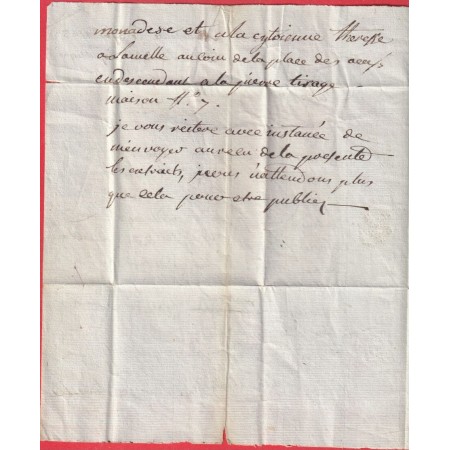 mon adese et a la cytoienne therese
au coin de la place des oeufs
en descendant a la pierre tirage
maison N.° 7.
je vous reitere avec instance de
m'envoyer au recu de la presente
les extraits, nous n'attendons plus
que cela pour etre publiez